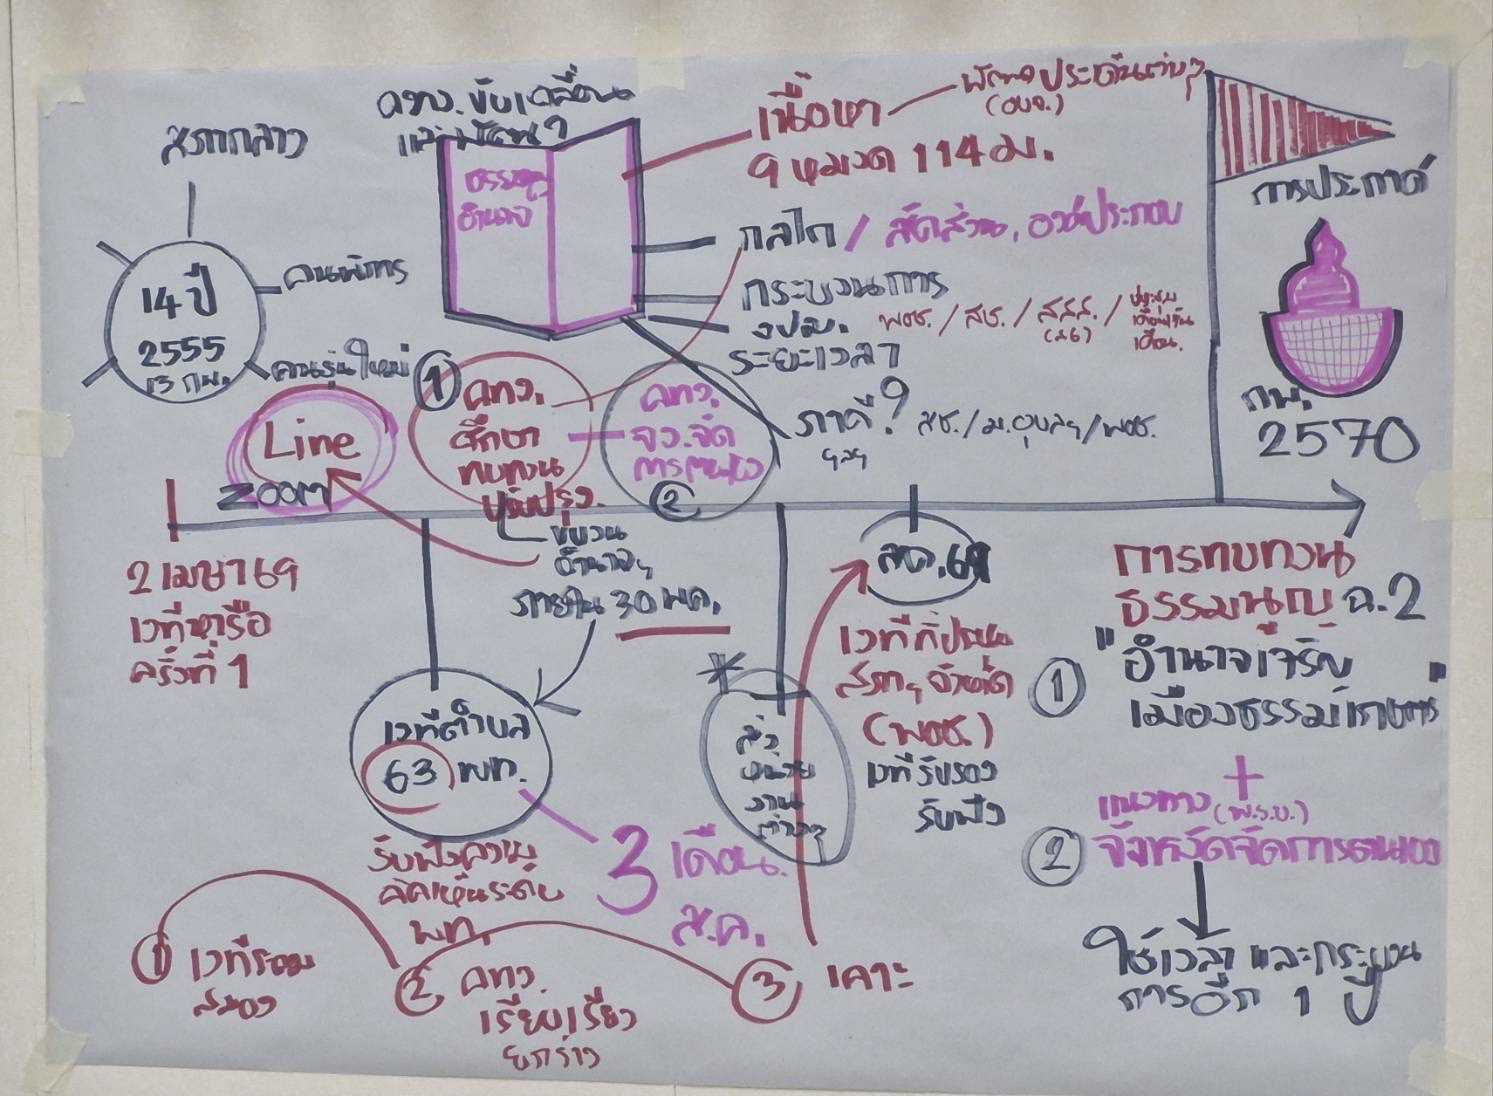 สภากลาง
14 ปี
2555
13 กพ.
คนพิการ
คนรุ่นใหม่
คทง. ขับเคลื่อน
และพัฒนา
ธรรมนูญ
อำนาจ
เนื้อหา
9 หมวด 114 ม.
ประเด็นต่างๆ
(อบจ.)
กลไก / สัดส่วน, องค์ประกอบ
กระบวนการ
งปม. พอช. / สช. / สสส. /
(ส6)
ระยะเวลา
ภาคี? สช. / ม.อุบลฯ / พอช.
ฯลฯ
การประกาศ
กพ.
2570
Line
zoom
① คทง.
ศึกษา
ทบทวน
ปรับปรุง.
คทง.
จว.จัด
การตนเอง
②
2 เมษา 69
เวทีหารือ
ครั้งที่ 1
ขบวน
อำนาจฯ
ภายใน 30 พค.
เวทีตำบล
63 พท.
รับฟังความ
คิดเห็นระดับ
พท.
3 เดือน.
ส.ค.
*
ส่ง
หน่วย
งาน
ต่างๆ
สค. 69
เวทีที่ประชุม
สภาฯ จังหวัด
(พอช.)
เวทีรับรอง
รับฟัง
① เวทีระดม
สมอง
② คทง.
เรียบเรียง
ยกร่าง
③ เคาะ
การทบทวน
ธรรมนูญ ฉ.2
① "อำนาจเจริญ
เมืองธรรมเกษตร"
+
แนวทาง (พ.ร.บ.)
② จังหวัดจัดการตนเอง
ใช้เวลา และกระบวน
การอีก 1 ปี